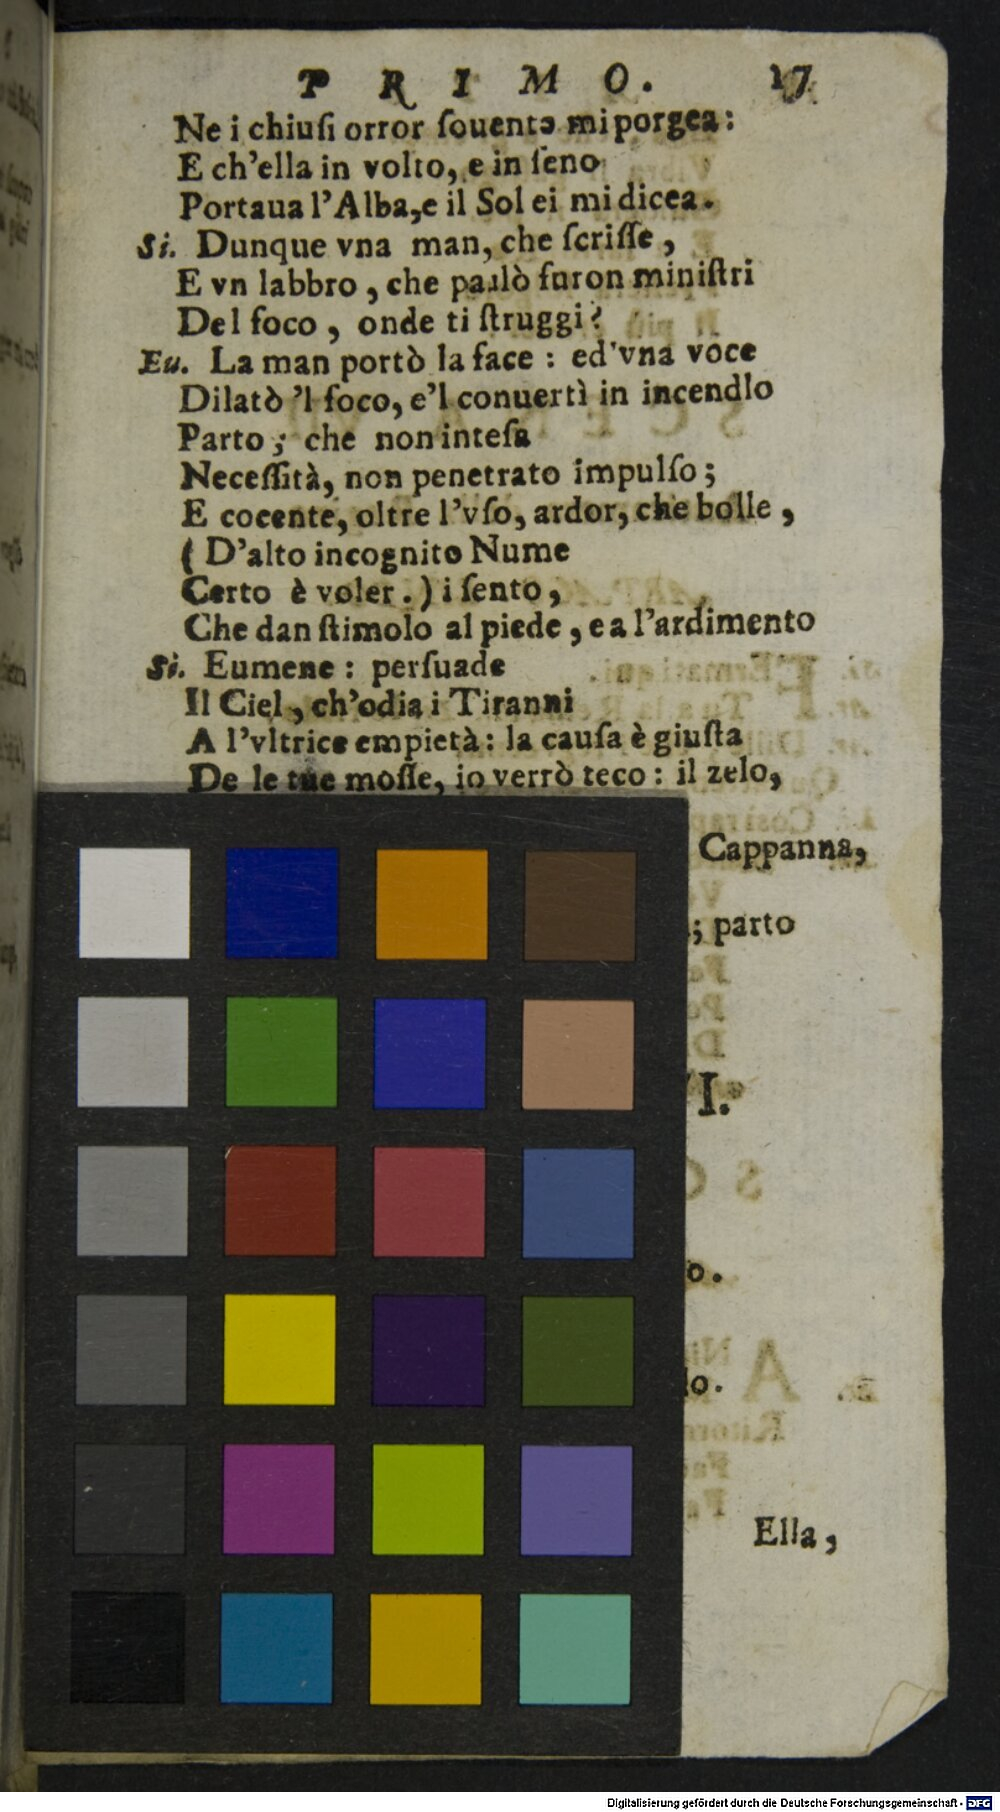 PRIMO. 17
Ne i chiuſi orror ſouente mi porgea:
E ch'ella in volto, e in ſeno
Portaua l'Alba, e il Sol ei mi dicea.
Si. Dunque vna man, che ſcriſſe,
E vn labbro, che parlò furon miniſtri
Del foco, onde ti ſtruggi?
Eu. La man portò la face: ed'vna voce
Dilatò 'l foco, e'l conuertì in incendlo
Parto; che non inteſa
Neceſſità, non penetrato impulſo;
E cocente, oltre l'vſo, ardor, che bolle,
( D'alto incognito Nume
Certo è voler.) i ſento,
Che dan ſtimolo al piede, e a l'ardimento
Si. Eumene: perſuade
Il Ciel, ch'odia i Tiranni
A l'vltrice empietà: la cauſa è giuſta
De le tue moſſe, io verrò teco: il zelo,
Cappanna,
; parto
I.
o.
lo.
Ella,
Digitalisierung gefördert durch die Deutsche Forschungsgemeinschaft - DFG